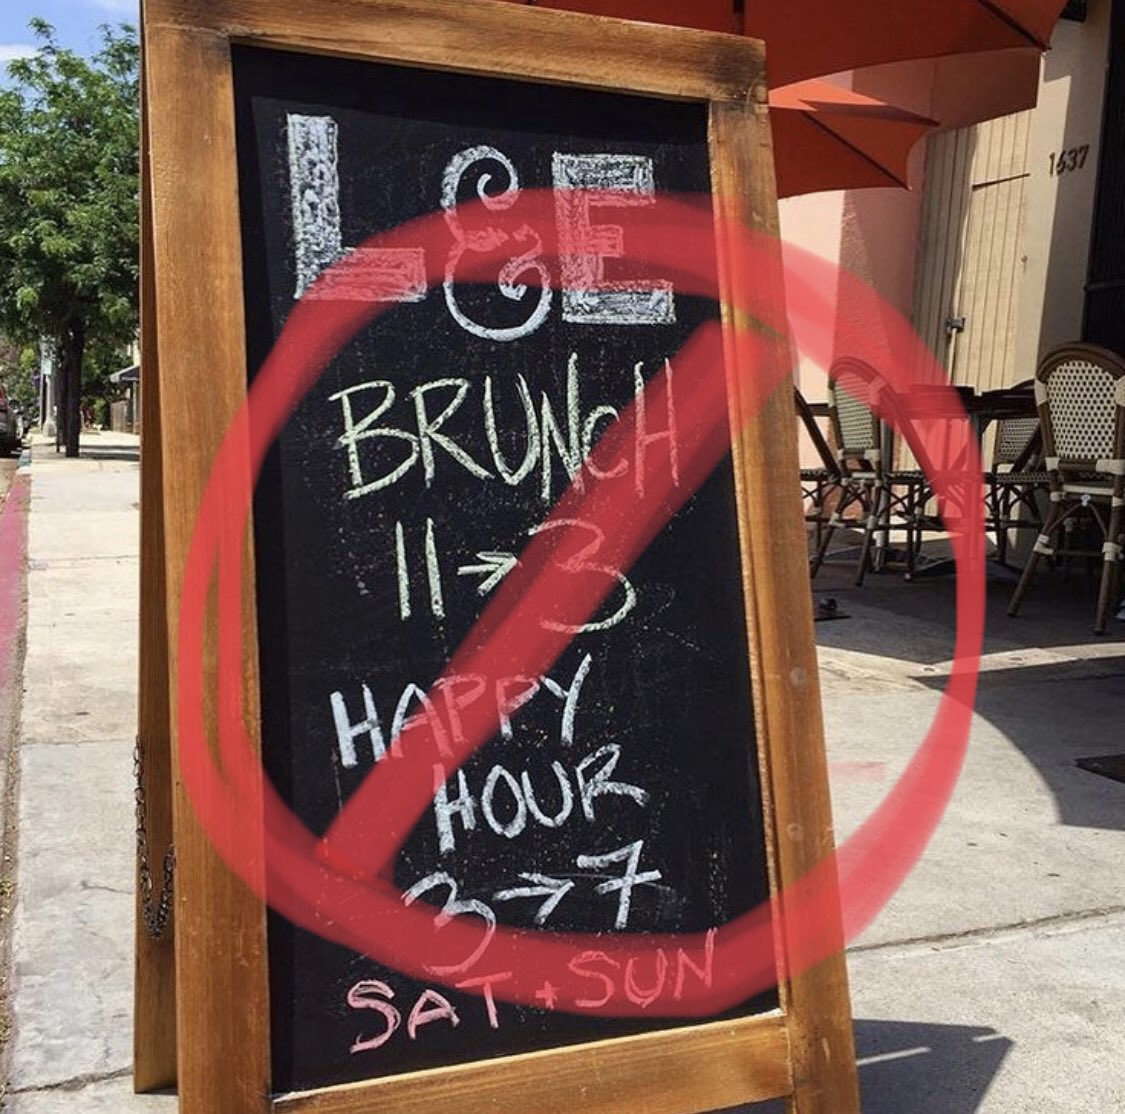 L&E
BRUNCH
11→3
HAPPY
HOUR
3→7
SAT + SUN
1637